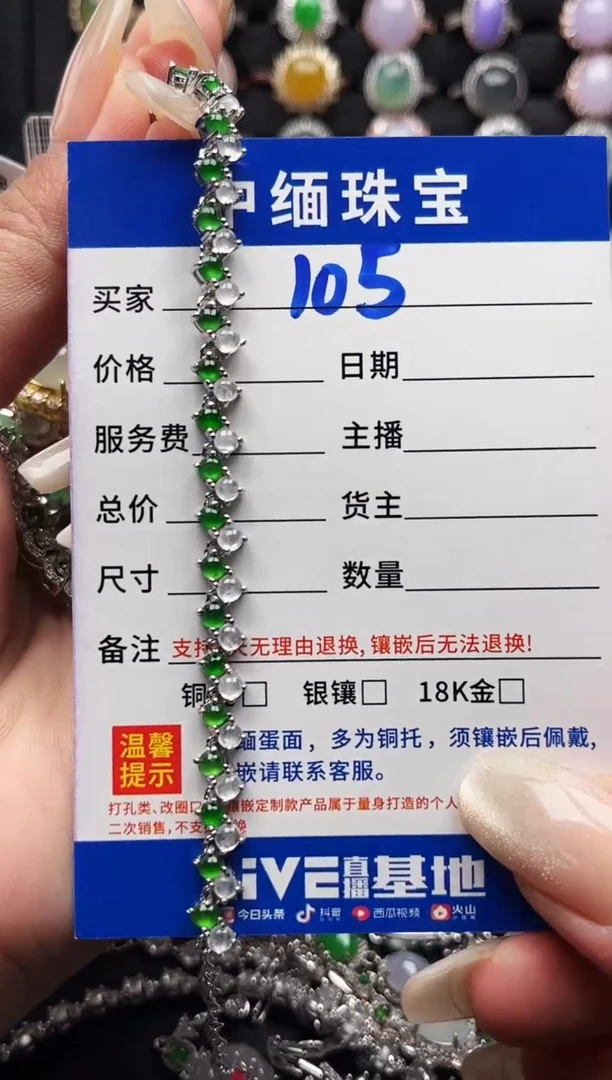 中缅珠宝
买家 105
价格 日期
服务费 主播
总价 货主
尺寸 数量
备注 支持 天无理由退换,镶嵌后无法退换!
铜 □ 银镶□ 18K金□
温馨提示
缅蛋面，多为铜托，须镶嵌后佩戴,
嵌请联系客服。
打孔类、改圈口 镶嵌定制款产品属于量身打造的个人
二次销售,不支 换
LIVE直播基地
今日头条 抖音 西瓜视频 火山